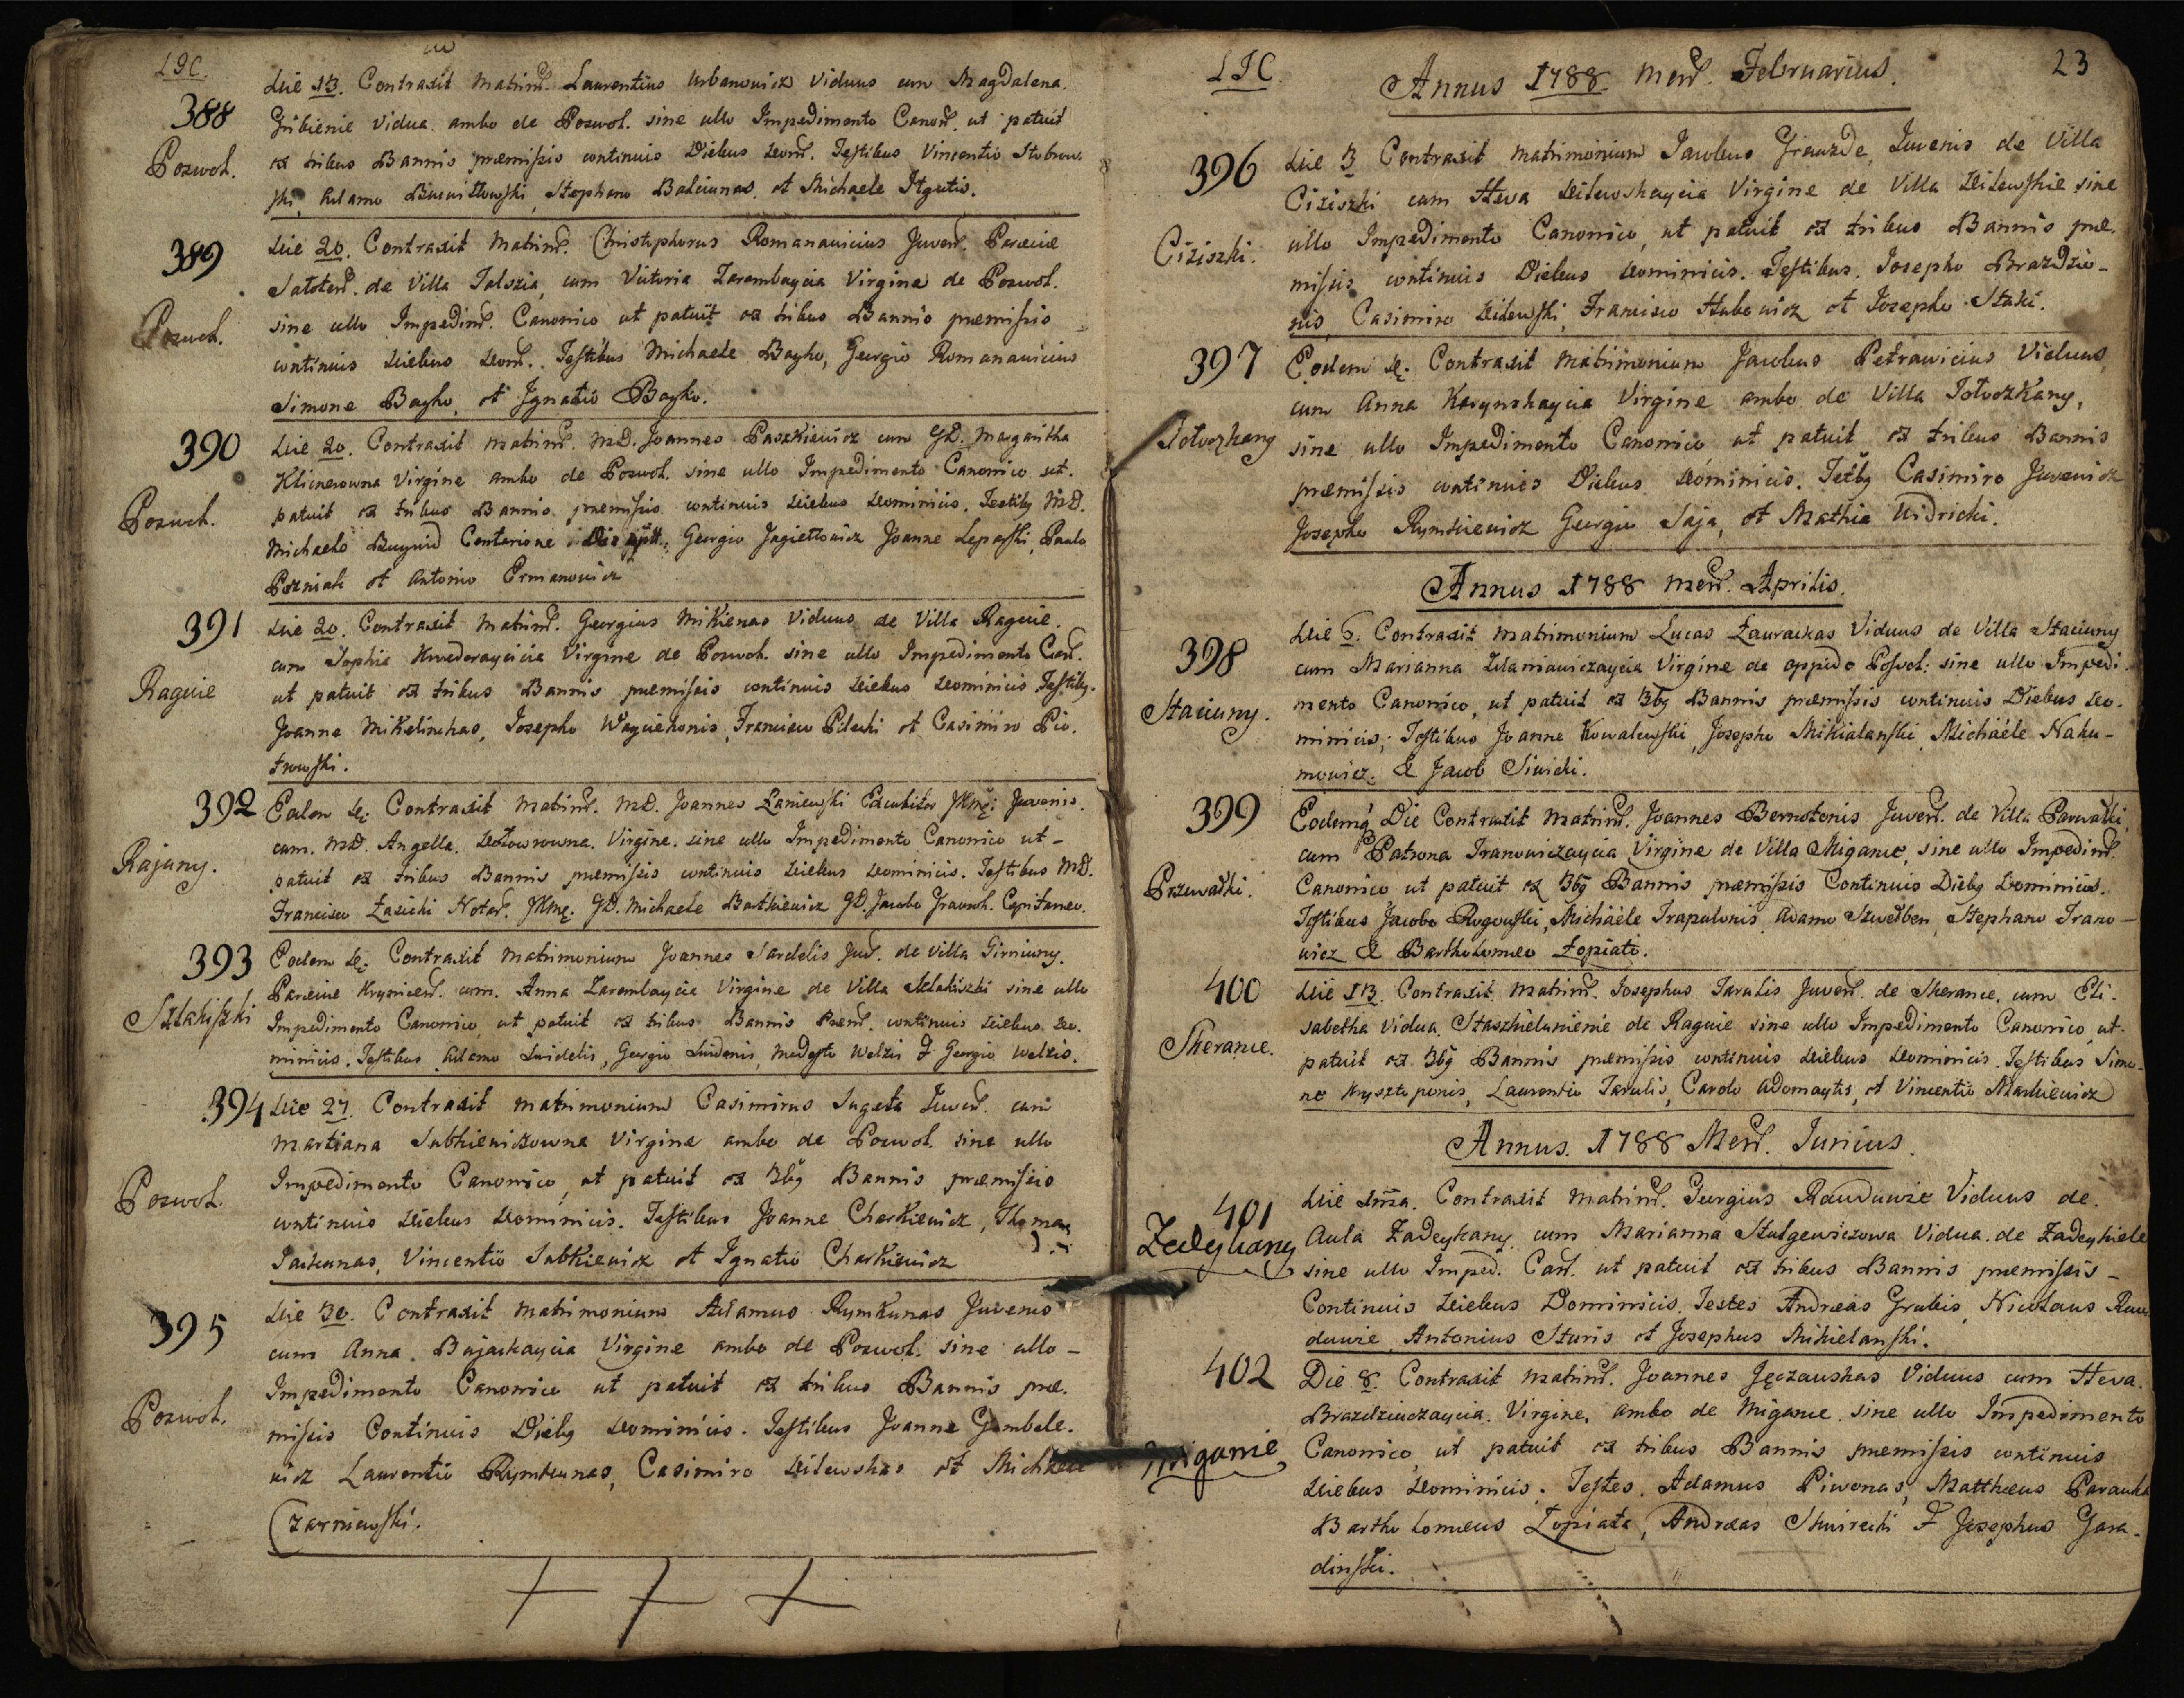 LIC.
388
Poswol.
Die 13. Contraxit Matrim. Laurentius Urbanowicz Viduus cum Magdalena
Gribienie Vidua ambo de Poswol. sine ullo Impedimento Canon. ut patuit
ex tribus Bannis præmissis continuis Diebus Dom. Testibus Vincentio
Adamo Stephano Balciunas et Michaele
389
Poswol.
Die 20. Contraxit Matrim. Christophorus Romanauicius Juven. Parœciæ
de Villa Talszia, cum Victoria Zarembaycia Virgine de Poswol.
sine ullo Impedim. Canonico ut patuit ex tribus Bannis præmissis
continuis Diebus Dom. Testibus Michaele Bayko, Georgio Romanauicius
Simone Bayko, et Ignatio Bayko.
390
Poswol.
Die 20. Contraxit Matrim. MD. Joannes Paszkiewicz cum GD. Margaritha
Klicnerowna Virgine ambo de Poswol. sine ullo Impedimento Canonico ut
patuit ex tribus Bannis præmissis continuis Diebus Dominicis. Testibg MD.
Michaele Centurione Georgio Jagiełłowicz Joanne Lepaski, Paulo
Pozniak et Antonio Ermanowicz
391
Raguie
Die 20. Contraxit Matrim. Georgius Mikienas Viduus de Villa Raguie.
cum Sophia Kwederaycicia Virgine de Poswol. sine ullo Impedimento Can.
ut patuit ex tribus Bannis præmissis continuis Diebus Dominicis Testibg.
Joanne Mikelinskas, Josepho Wayciekonis, Francisco Pilecki et Casimiro Pio-
trowski.
392
Rajuny.
Eodem de: Contraxit Matrim. MD. Joannes Łaniewski Juvenis.
cum. MD. Angella Virgine. sine ullo Impedimento Canonico ut-
patuit ex tribus Bannis præmissis continuis Diebus Dominicis. Testibus MD.
Francisco Łasicki Notar. GD. Michaele Bartkiewicz GD. Jacobo Capitaneo.
393
Sztakiszki
Eodem de: Contraxit Matrimonium Joannes Sardelis Juv. de Villa Girniuny.
Parœciæ Krynicen. cum. Anna Zarembaycia Virgine de Villa Sztakiszki sine ullo
Impedimento Canonico, ut patuit ex tribus Bannis Præm. continuis Diebus Do-
minicis. Testibus Adamo Georgio Modesto Welzis & Georgio Welzis.
394
Poswol.
Die 27. Contraxit Matrimonium Casimirus Sugeta Juven. cum
Martiana Subkiewiczowna Virgine ambo de Poswol. sine ullo
Impedimento Canonico, ut patuit ex 3bg Bannis præmissis
continuis Diebus Dominicis. Testibus Joanne Charkiewicz, Thoma
Vincentio Subkiewicz et Ignatio Charkiewicz
395
Poswol.
Die 30. Contraxit Matrimonium Adamus Rymkunas Juvenis
cum Anna Bajarkaycia Virgine ambo de Poswol. sine ullo-
Impedimento Canonico ut patuit ex tribus Bannis præ-
missis Continuis Diebg Dominicis. Testibus Joanne Gimbele-
wicz Laurentio Rymkunas, Casimiro Dilewskas et Michaele
Czarniewski.
LIC.
Annus 1788 Men. Februarius.
23
396
Ciziszki.
Die 3 Contraxit Matrimonium Jacobus Grauzde, Juvenis de Villa
Ciziszki cum Heva Dilewskaycia Virgine de Villa Dilewskie sine
ullo Impedimento Canonico, ut patuit ex tribus Bannis præ-
missis continuis Diebus Dominicis. Testibus. Josepho Brazdzio-
nis, Casimiro Dilewski, Francisco Hubowicz et Josepho Staki.
397
Totoczkany
Eodem de: Contraxit Matrimonium Jacobus Petrawicius Viduus
cum Anna Karynskaycia Virgine ambo de Villa Totoczkany,
sine ullo Impedimento Canonico ut patuit ex tribus Bannis
præmissis continuis Diebus Dominicis. Testbg Casimiro Jurewicz
Josepho Rymkiewicz Georgio Saja, et Mathia Widricki.
Annus 1788 Men. Aprilis.
398
Staciuny.
Die Contraxit Matrimonium Lucas Łaurackas Viduus de Villa Staciuny
cum Marianna Virgine de oppido Posvol: sine ullo Impedi-
mento Canonico, ut patuit ex 3bg Bannis præmissis continuis Diebus Do-
minicis; Testibus Joanne Kowalewski, Josepho Mikialanski, Michaele Naku-
mowicz. & Jacob Siwicki.
399
Przewalki.
Eodemq Die Contraxit Matrim. Joannes Bernotonis Juven. de Villa
cum Patrona Iranowiczaycia Virgine de Villa Migance, sine ullo Impedim.
Canonico ut patuit ex 3bg Bannis præmissis Continuis Diebg Dominicis.
Testibus Jacobo Rogowski, Michaele Trapulonis Adamo Stephano Irano-
wicz & Bartholomeo Łopiato.
400
Skeranie.
Die 13. Contraxit Matrim. Josephus Tarulis Juven. de Skeranie, cum Eli-
sabetha Vidua Staszkielunienie de Raguie sine ullo Impedimento Canonico, ut
patuit ex 3bg Bannis præmissis continuis Diebus Dominicis. Testibus Simo-
ne Krysztoponis, Laurentio Tarulis, Carolo Adomaytis, et Vincentio Markiewicz
Annus. 1788 Men. Junius.
401
Zadeykany
Die 1ma. Contraxit Matrim. Georgius Rauduwie Viduus de.
Aula Zadeykany cum Marianna Stulgewiczowa Vidua de Zadeykiele
sine ullo Imped. Can. ut patuit ex tribus Bannis præmissis-
Continuis Diebus Dominicis. Testes Andreas Grubis, Nicolaus Rau-
duwie Antonius Sturis et Josephus Mikielanski.
402
Migance
Die 8. Contraxit Matrim. Joannes Jęczauskas Viduus cum Heva.
Brazdziuczaycia. Virgine, ambo de Migance sine ullo Impedimento
Canonico, ut patuit ex tribus Bannis præmissis continuis
Diebus Dominicis. Testes. Adamus Piwonas, Matthæus
Bartholomeus Łopiata, Andreas & Josephus Gara-
dinski.